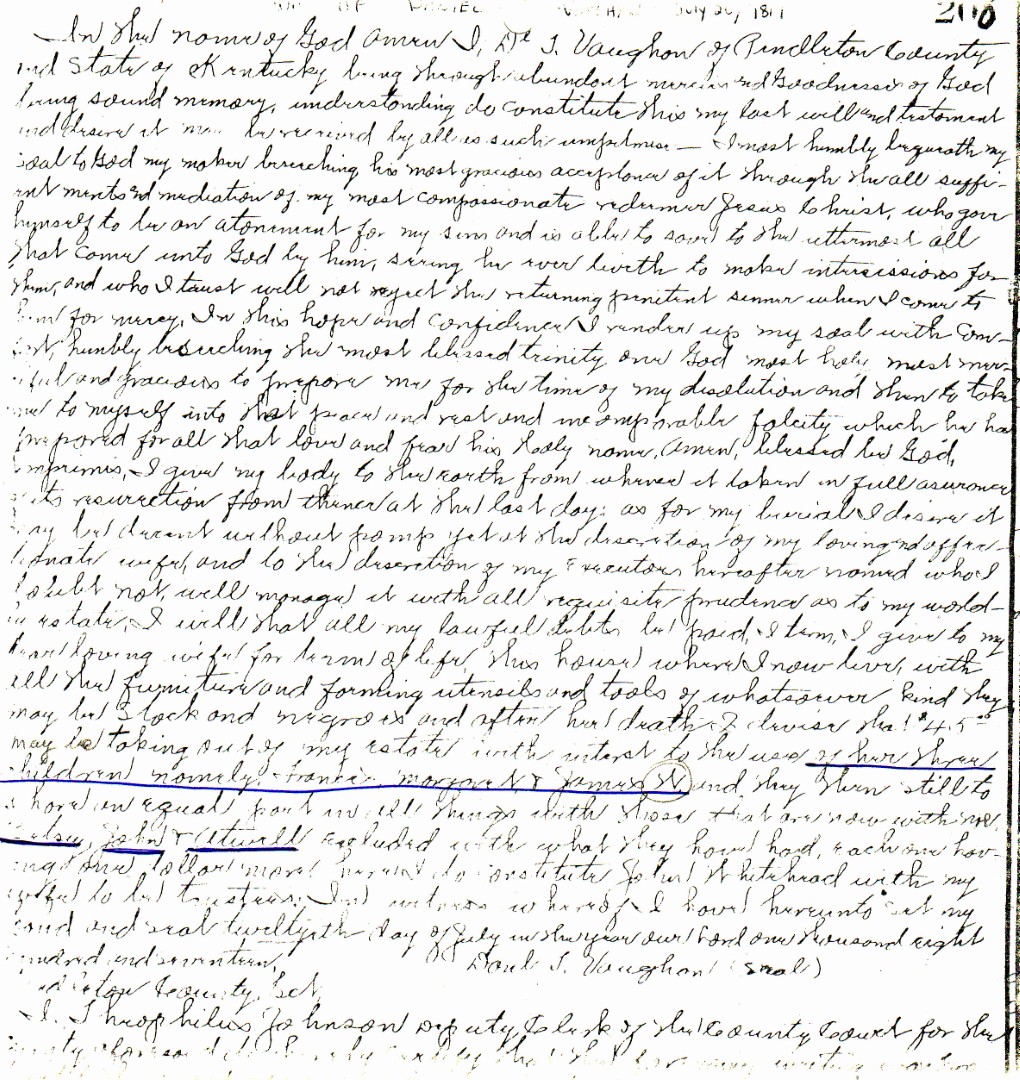 OF DANIEL July 20, 1817
200
In the name of God Amen I, Dl. T. Vaughon of Pendleton County
and State of Kentucky being through abundant mercies and Goodness of God
being sound memory, understanding do constitute this my last will and testament
and desire it may be received by all as such — I most humbly bequeath my
soal to God my maker beseeching his most gracious acceptance of it through the all suffi-
ent merits and mediation of my most compassionate redeemer Jesus Christ, who gave
himself to be an atonement for my sins and is able to save to the uttermost all
that come unto God by him, seeing he ever liveth to make intercissions for
them, and who I trust will not reject the returning penitent sinner when I come to
him for mercy. In this hope and confidence I render up my soal with com-
fort, humbly beseeching the most blessed trinity one God most holy most mer-
iful and gracious to prepare me for the time of my disolution and then to take
me to myself into that peace and rest and incomparable falcity which he has
prepared for all that love and fear his holy name, Amen, blessed be God,
mprimis, I give my body to the earth from whence it taken in full asurance
its resurection from thence at the last day; as for my burial I desire it
may be decent without pomp yet at the discretion of my loving and affec-
tionate wife, and to the discretion of my Executors hereafter named who I
doubt not, will manage it with all requisite prudence as to my world-
estate, I will that all my lawful debts be paid, Item, I give to my
dear loving wife for term of life, this house where I now live, with
all the furniture and farming utensils and tools of whatsoever kind they
may be Stock and negroes and after her death I devise that $45
may be taking out of my estate with interst to the use of her three
children namely, Francis, Margaret & James W. and they then still to
have an equal part in all things with those that are now with me,
Betsy, John & Atwell excluded with what they have had, each one hav-
ing one dollar more constitute John Whitehead with my
wife to be trustees. In witness whereof I have hereunto set my
hand and seal day of July in the year our Lord one thousand eight
hundred and seventeen,
Danl T. Vaughon (seal)
County, Sct.
I. Theophilus Johnson Deputy Clerk of the County Court for the
writing